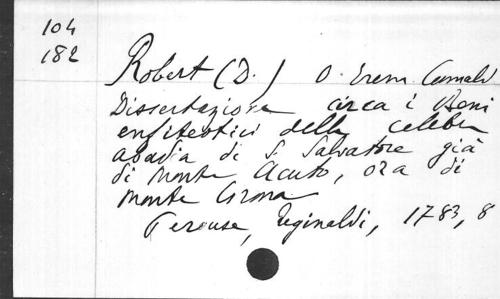 104
182
Robert (D.) O. Erem. Camald
Dissertazione circa i Beni
enfiteotici della celebre
abadia di S. Salvatore già
di Monte Acuto, ora di
Monte Corona
Perouse, Reginaldi, 1783, 8